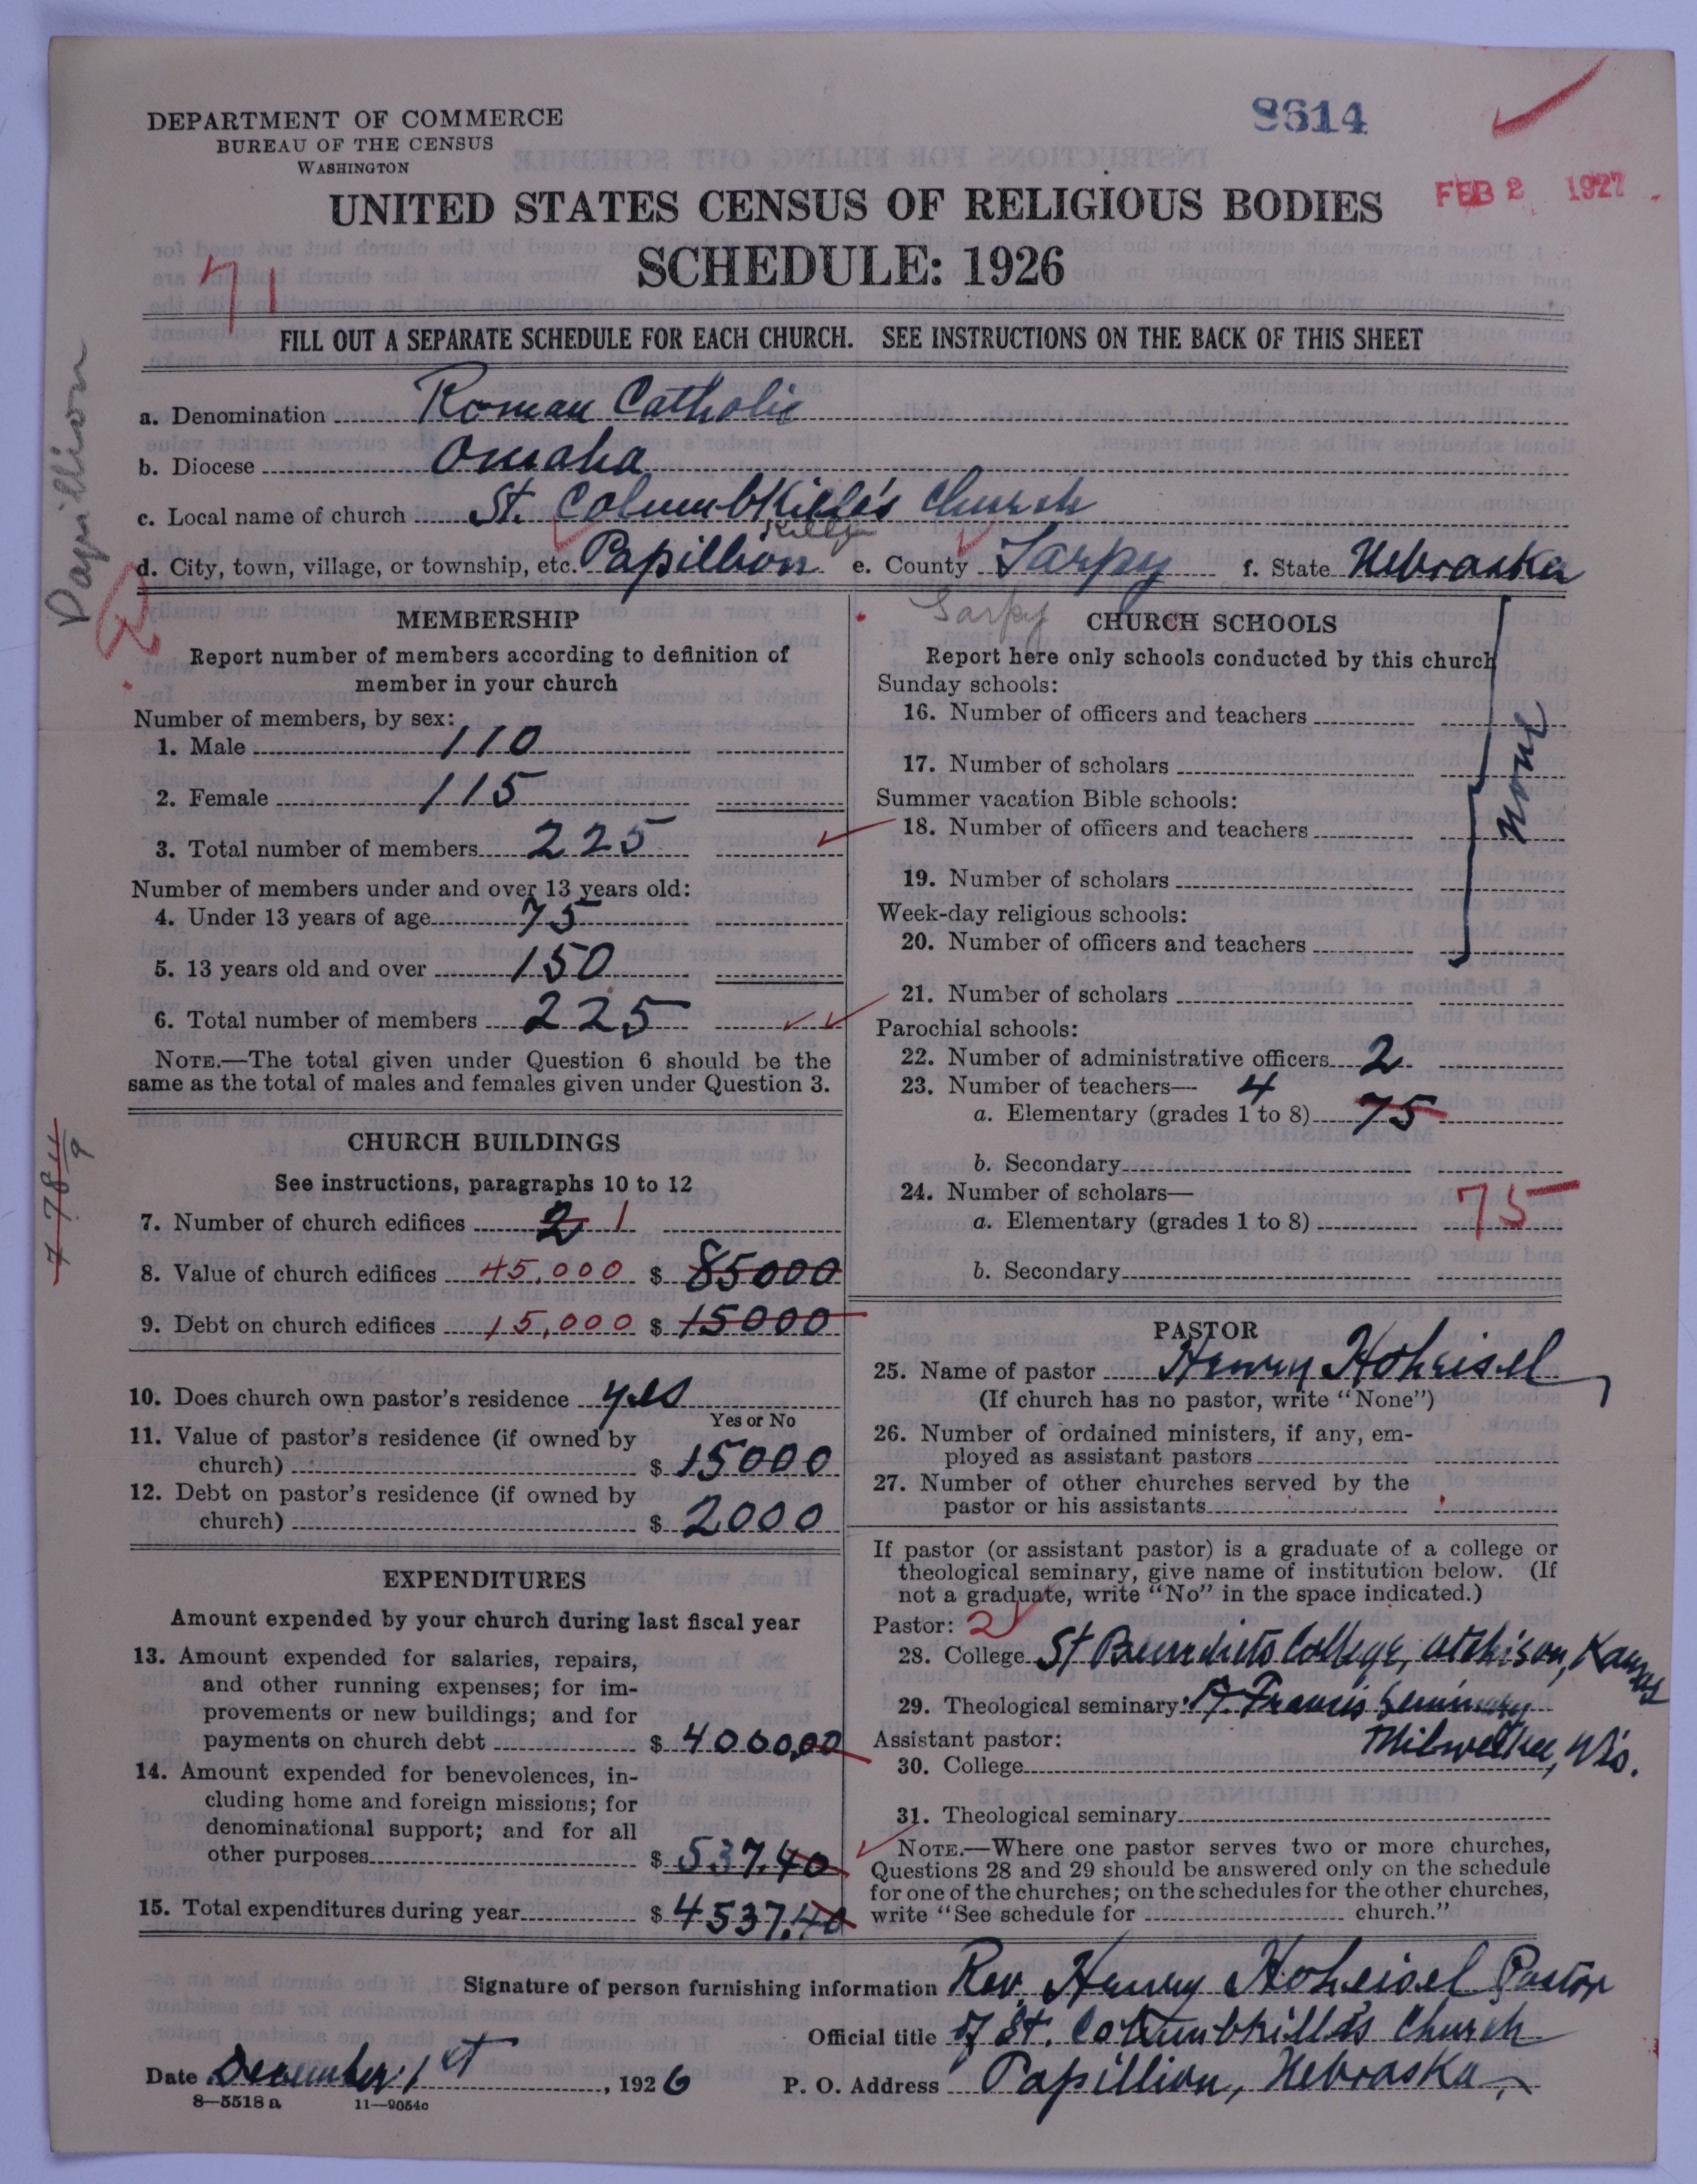 DEPARTMENT OF COMMERCE
BUREAU OF THE CENSUS
WASHINGTON
8614
FEB 2 1927
UNITED STATES CENSUS OF RELIGIOUS BODIES
SCHEDULE: 1926
71
FILL OUT A SEPARATE SCHEDULE FOR EACH CHURCH. SEE INSTRUCTIONS ON THE BACK OF THIS SHEET
Papillion
a. Denomination Roman Catholic
b. Diocese Omaha
c. Local name of church St. Columbkille's Church
d. City, town, village, or township, etc. Papillion e. County Sarpy f. State Nebraska
Sarpy
MEMBERSHIP
Report number of members according to definition of
member in your church
Number of members, by sex:
1. Male 110
2. Female 115
3. Total number of members 225
Number of members under and over 13 years old:
4. Under 13 years of age 75
5. 13 years old and over 150
6. Total number of members 225
NOTE.—The total given under Question 6 should be the
same as the total of males and females given under Question 3.
CHURCH BUILDINGS
See instructions, paragraphs 10 to 12
7. Number of church edifices 2 1
8. Value of church edifices 45,000 $ 85000
9. Debt on church edifices 15,000 $ 15000
10. Does church own pastor's residence yes
Yes or No
11. Value of pastor's residence (if owned by
church) $ 15000
12. Debt on pastor's residence (if owned by
church) $ 2000
EXPENDITURES
Amount expended by your church during last fiscal year
13. Amount expended for salaries, repairs,
and other running expenses; for im-
provements or new buildings; and for
payments on church debt $ 4000,00
14. Amount expended for benevolences, in-
cluding home and foreign missions; for
denominational support; and for all
other purposes $ 537.40
15. Total expenditures during year $ 4537.40
CHURCH SCHOOLS
Report here only schools conducted by this church
Sunday schools:
16. Number of officers and teachers
17. Number of scholars
Summer vacation Bible schools:
18. Number of officers and teachers
19. Number of scholars
Week-day religious schools:
20. Number of officers and teachers
None
21. Number of scholars
Parochial schools:
22. Number of administrative officers 2
23. Number of teachers— 4
a. Elementary (grades 1 to 8) 75
b. Secondary
24. Number of scholars—
a. Elementary (grades 1 to 8) 75
b. Secondary
PASTOR
25. Name of pastor Henry Hoheisel
(If church has no pastor, write "None")
26. Number of ordained ministers, if any, em-
ployed as assistant pastors
27. Number of other churches served by the
pastor or his assistants
If pastor (or assistant pastor) is a graduate of a college or
theological seminary, give name of institution below. (If
not a graduate, write "No" in the space indicated.)
Pastor: 2
28. College St Benedicts College, Atchison, Kansas
29. Theological seminary St. Francis Seminary
Assistant pastor: Milwaukee, Wis.
30. College
31. Theological seminary
NOTE.—Where one pastor serves two or more churches,
Questions 28 and 29 should be answered only on the schedule
for one of the churches; on the schedules for the other churches,
write "See schedule for church."
Signature of person furnishing information Rev. Henry Hoheisel Pastor
Official title of St. Columbkille's Church
Date December 1st, 1926 P. O. Address Papillion, Nebraska
8—5518 a 11—9054c